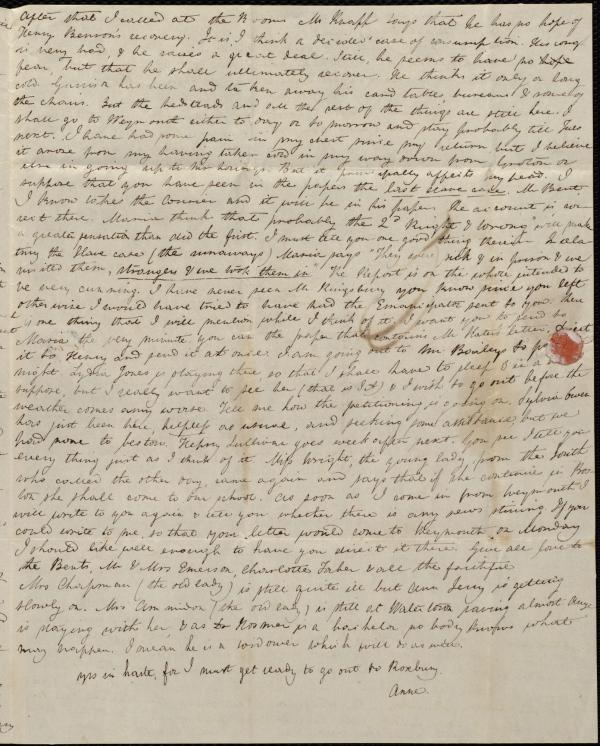 After that I called at the Rooms Mr Knapp says that he has no hope of
Henry Benson's recovery. It is I think a decided case of consumption. His cough
is very bad, & he raises a great deal. Still, he seems to have no
fear, but that he shall ultimately recover. He thinks it only a long
cold. Garrison has been and taken away his card table, bureaus & some of
the chairs. But the bedsteads and all the rest of the things are still here. I
shall go to Weymouth either to day or to morrow and stay probably till Tues
next. I have had some pain in my chest since my return but I believe
it arose from my having taken cold in my way down from Groton or
else in going up to Mr But it principally affects my head. I
suppose that you have seen in the papers the last slave case. Mr Bent
I know takes the Courier and it will be in his paper. The account is cor-
rect there. Maria thinks that probably the 2d Right & Wrong will make
a greater sensation than did the first. I must tell you one good thing therein. In rela-
ting the slave case (the runaways) Maria says "They were sick & in prison & we
visited them, strangers & we took them in" The Report is on the whole intended to
be very cunning. I have never seen Mr Kingsbury you know since you left
otherwise I would have tried to have had the Emancipator sent to you. There
is one thing that I will mention while I think of it. I want you to send to
Maria the very minute you can the paper that contains Mr letter, direct
it to Henry and send it at once. I am going out to Mr Bailey's to
night. Lydia Jones is staying there so that I shall have to sleep 3 in a
suppose, but I really want to see her (that is L J) & I wish to go out before the
weather comes any worse. Tell me how the petitioning is going on. Sylvia
has just been here, helpless as usual, and seeking some assistance, but we
had none to bestow. Hepsy Sullivan goes week after next. You see I tell you
every thing just as I think of it. Miss Wright, the young lady from the South
who called the other day, came again and says that if she continues in Bos-
ton she shall come to our school. As soon as I come in from Weymouth I
will write to you again & tell you whether there is any news stirring. If you
could write to me, so that your letter would come to Weymouth on Monday
I should like well enough to have you direct it there. Give all love to
the Bents, Mr & Mrs Emerson, Charlotte & all the faithful
Mrs Chapman (the old lady) is still quite ill but Ann Terry is getting
slowly on. Mrs Ammidon (the old lady) is still at Watertown raving almost
is staying with her & as Dr Hosmer is a bachelor no body knows what
may happen. I mean he is a widower which will do as well.
yrs in haste, for I must get ready to go out to Roxbury.
Anne.